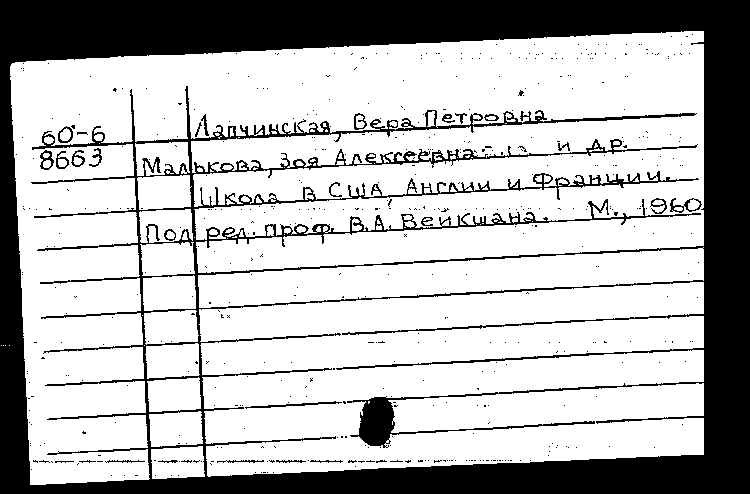 60-6 Лапчинская, Вера Петровна.
8663 Малькова, Зоя Алексеевна и др.
Школа в США, Англии и Франции.
Под ред. проф. В.А. Вейкшана. М., 1960